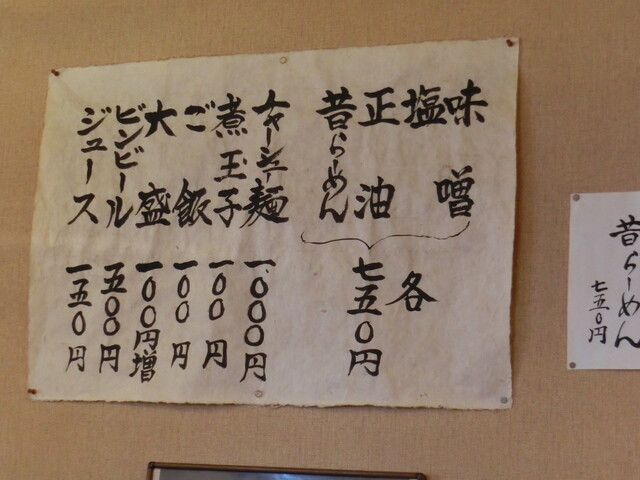 味噌
塩
正油
昔らーめん
各
七五〇円
チャーシュー麺 一、〇〇〇円
煮玉子 一〇〇円
ご飯 一〇〇円
大盛 一〇〇円増
ビンビール 五〇〇円
ジュース 一五〇円
昔らーめん
七五〇円